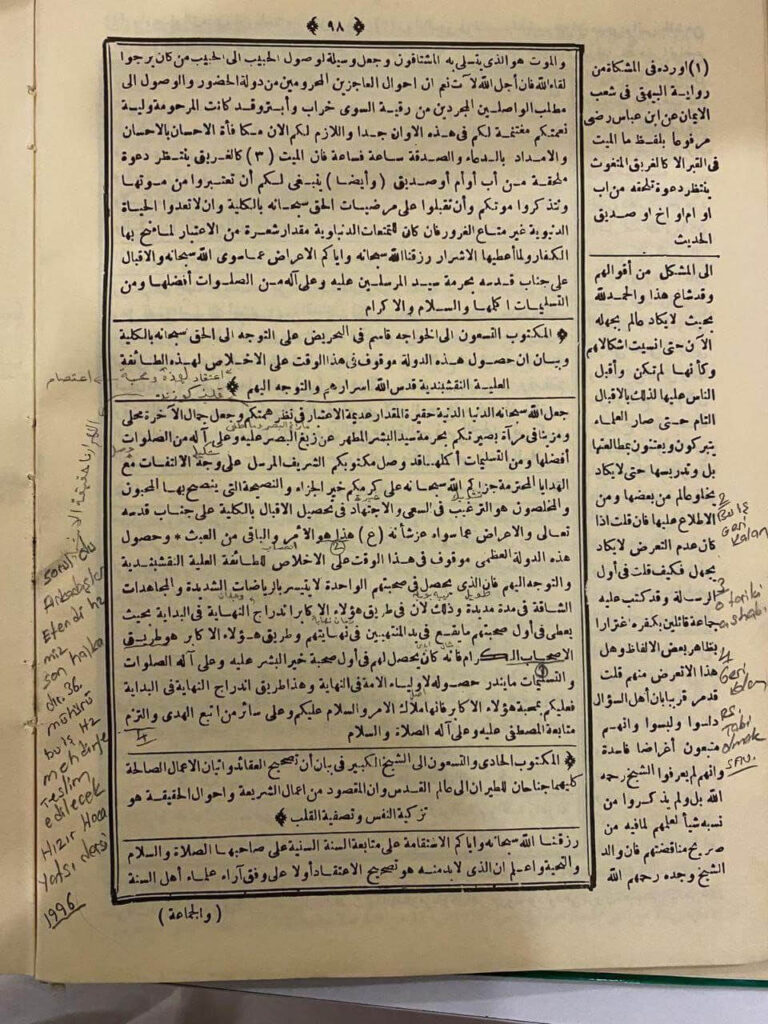 ﴿ ٩٨ ﴾
والموت هو الذى يتسلى به المشتاقون وجعل وسيلة لوصول الحبيب الى الحبيب من كان يرجوا
لقاء الله فان أجل الله لآت نعم ان احوال العاجزين المحرومين من دولة الحضور والوصول الى
مطلب الواصلين المجردين من رقية السوى خراب وأبتر وقد كانت المرحومة ولية
نعمتكم مغتنمة لكم فى هذه الاوان جدا واللازم لكم الان مكافأة الاحسان بالاحسان
والامداد بالدعاء والصدقة ساعة فساعة فان الميت (٣) كالغريق ينتظر دعوة
ملحقة من أب أوأم أو صديق (وأيضا) ينبغى لكم أن تعتبروا من موتها
وتتذكروا موتكم وأن تقبلوا على مرضيات الحق سبحانه بالكلية وان لاتعدوا الحياة
الدنيوية غير متاع الغرور فان كان للتمتعات الدنياوية مقدار شعرة من الاعتبار لما فتح بها
الكفار ولما أعطيها الاشرار رزقنا الله سبحانه واياكم الاعراض عما سوى الله سبحانه والاقبال
على جناب قدسه بحرمة سيد المرسلين عليه وعلى آله من الصلوات أفضلها ومن
التسليمات اكملها والسلام والاكرام
﴿ المكتوب التسعون الى الخواجه قاسم فى التحريض على التوجه الى الحق سبحانه بالكلية
وبيان ان حصول هذه الدولة موقوف فى هذا الوقت على الاخلاص لهذه الطائفة
العلية النقشبندية قدس الله اسرارهم والتوجه اليهم ﴾
جعل الله سبحانه الدنيا الدنية حقيرة المقدار عديمة الاعتبار فى نظر همتكم وجعل جمال الآخرة محلى
ومزينا فى مرآة بصيرتكم بحرمة سيد البشر المطهر عن زيغ البصر عليه وعلى آله من الصلوات
أفضلها ومن التسليمات أكملها قد وصل مكتوبكم الشريف المرسل على وجه الالتفات مع
الهدايا المحترمة جزاكم الله سبحانه على كرمكم خير الجزاء والنصيحة التى ينصح بها المحبون
والمخلصون هو الترغيب فى السعى والاجتهاد فى تحصيل الاقبال بالكلية على جناب قدسه
تعالى والاعراض عما سواه عز شأنه (ع) هذا هو الأمر والباقى من العبث * وحصول
هذه الدولة العظمى موقوف فى هذا الوقت على الاخلاص للطائفة العلية النقشبندية
والتوجه اليهم فان الذى يحصل فى صحبتهم الواحدة لا يتيسر بالرياضات الشديدة والمجاهدات
الشاقة فى مدة مديدة وذلك لان فى طريق هؤلاء الاكابر اندراج النهاية فى البداية بحيث
يعطى فى أول صحبتهم ما يقع فى يد المنتهيين فى نهايتهم وطريق هؤلاء الاكابر هو طريق
الاصحاب الكرام فانه كان يحصل لهم فى أول صحبة خير البشر عليه وعلى آله الصلوات
والتسليمات ما يندر حصوله لاولياء الامة فى النهاية وهذا طريق اندراج النهاية فى البداية
فعليكم بمحبة هؤلاء الاكابر فانها ملاك الامر والسلام عليكم وعلى سائر من اتبع الهدى والتزم
متابعة المصطفى عليه وعلى آله الصلاة والسلام
﴿ المكتوب الحادى والتسعون الى الشيخ الكبير فى بيان أن تصحيح العقائد واتيان الاعمال الصالحة
كليهما جناحان للطيران الى عالم القدس وان المقصود من اعمال الشريعة واحوال الحقيقة هو
تزكية النفس وتصفية القلب ﴾
رزقنا الله سبحانه واياكم الاستقامة على متابعة السنة السنية على صاحبها الصلاة والسلام
والتحية واعلم ان الذى لابد منه هو تصحيح الاعتقاد أولا على وفق آراء علماء أهل السنة
(والجماعة)
(١) اورده فى المشكاة من
رواية البيهقى فى شعب
الايمان عن ابن عباس رضى
مرفوعا بلفظ ما الميت
فى القبر الا كالغريق المتغوث
ينتظر دعوة تلحقه من اب
او ام او اخ او صديق
الحديث
الى المشكل من أقوالهم
وقد شاع هذا والحمد لله
بحيث لايكاد عالم يجهله
الآن حتى انسيت اشكالاتهم
وكأنها لم تكن وأقبل
الناس عليها لذلك بالاقبال
التام حتى صار العلماء
يتبركون ويعتنون بمطالعتها
بل وتدريسها حتى لايكاد
يخلو عالم من بعضها ومن
الاطلاع عليها فان قلت اذا
كان عدم التعرض لايكاد
يجهل فكيف قلت فى أول
الرسالة وقد كتب عليه
جماعة قائلين بكفره اغترارا
بظاهر بعض الالفاظ وهل
هذا الاتعرض منهم قلت
قد مر قريبا بان أهل السؤال
دلسوا ولبسوا وانهم
متبعون أغراضا فاسدة
وانهم لم يعرفوا الشيخ رحمه
الله بل ولم يذكروا من
نسبه شيأ لعلمهم لمافيه من
صريح مناقضتهم فان والد
الشيخ وجده رحمهم الله
2
Geri
Kalan
3
O tariki
ashabı
4
Geri
Kalan
Tabi
olmak
اعتصام
soruldu
Efendi Hz
miz
son halka
dır. 36.
mühürü
Hz
mehdiye
Teslim
edilecek
Hızır Hoca
Yatsı dersi
1996